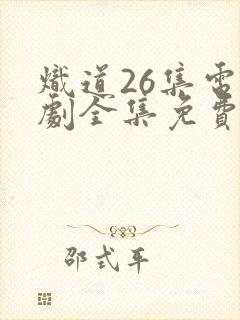 熾道26集電
劇全集免費
邵式平